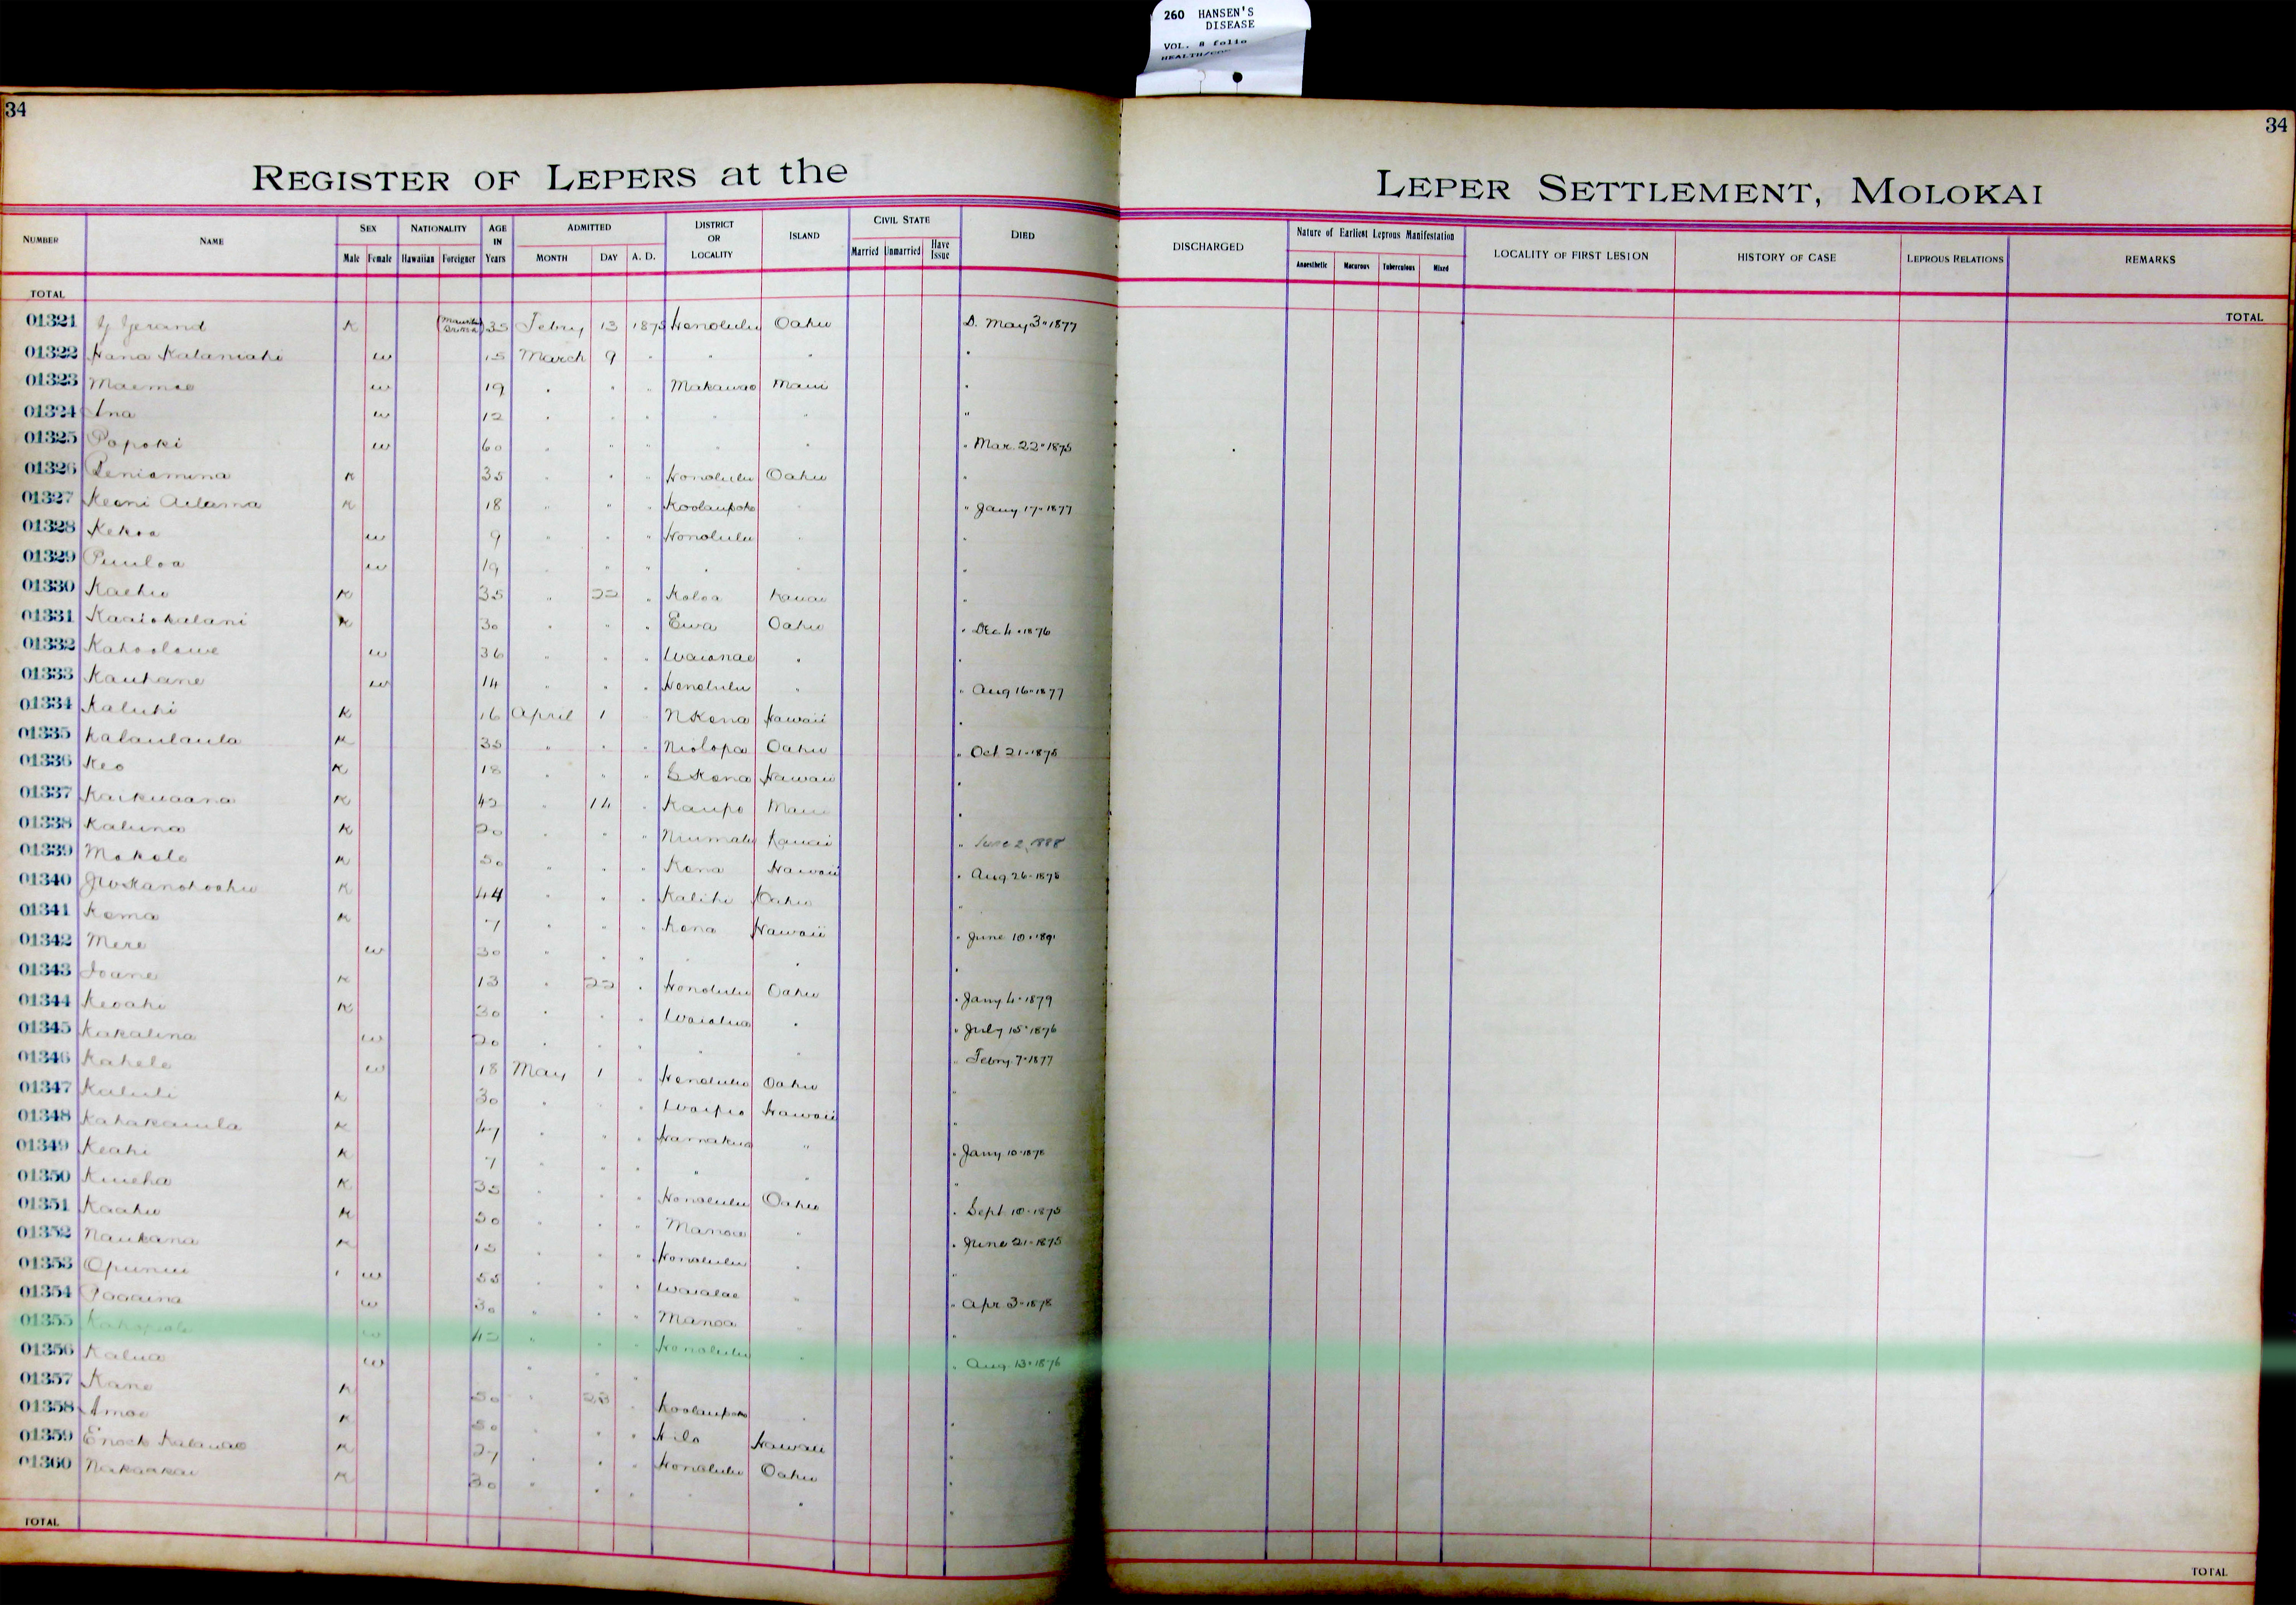 260 HANSEN'S
DISEASE
VOL. 8 folio
34
34
REGISTER OF LEPERS at the
LEPER SETTLEMENT, MOLOKAI
NUMBER NAME SEX NATIONALITY AGE IN Years ADMITTED DISTRICT OR LOCALITY ISLAND CIVIL STATE DIED DISCHARGED Nature of Earliest Leprous Manifestation LOCALITY OF FIRST LESION HISTORY OF CASE LEPROUS RELATIONS REMARKS
Male Female Hawaiian Foreigner MONTH DAY A. D. Married Unmarried Have Issue Anaesthetic Macurous Tuberculous Mixed
TOTAL
TOTAL
01321 K 35 Febry 13 1875 Honolulu Oahu D. May 3 " 1877
01322 Hana Kalaniahi w 15 March 9 " " " "
01323 Maemae w 19 " " " Makawao Maui "
01324 Ina w 12 " " " " " "
01325 Popoki w 60 " " " " " " Mar. 22 " 1875
01326 Peniamina K 35 " " " Honolulu Oahu "
01327 Keoni Adama K 18 " " " Koolaupoko " " Jany 17 " 1877
01328 Kekoa w 9 " " " Honolulu " "
01329 Puuloa w 19 " " " " " "
01330 Kaehu K 35 " 22 " Koloa Kauai "
01331 Kaaiokalani K 30 " " " Ewa Oahu " Dec 4 " 1876
01332 Kahoolawe w 36 " " " Waianae " "
01333 Kauhane w 14 " " " Honolulu " " Aug 16 " 1877
01334 Kaluhi K 16 April 1 " N Kona Hawaii "
01335 Kalaulaula K 35 " " " Niolopa Oahu " Oct 21 " 1875
01336 Keo K 18 " " " S Kona Hawaii "
01337 Kaikuaana K 42 " 14 " Kaupo Maui "
01338 Kaluna K 20 " " " Niumalu Kauai " June 2, 1888
01339 Mokole K 50 " " " Kona Hawaii " Aug 26 " 1878
01340 K 44 " " " Kalihi Oahu "
01341 Koma K 7 " " " Kona Hawaii " June 10 " 1891
01342 Mere w 30 " " " " " "
01343 Ioane K 13 " 22 " Honolulu Oahu " Jany 4 " 1879
01344 Keoahi K 30 " " " Waialua " " July 15 " 1876
01345 Kakalina w 20 " " " " " " Febry 7 " 1877
01346 Kahele w 18 May 1 " Honolulu Oahu "
01347 Kaluli K 30 " " " Waipio Hawaii "
01348 Kahakauila K 47 " " " Hamakua " " Jany 10 " 1878
01349 Keahi K 7 " " " " " "
01350 Kuueha K 35 " " " Honolulu Oahu " Sept 10 " 1875
01351 Kaahu K 50 " " " Manoa " " June 21 " 1875
01352 Naukana K 15 " " " Honolulu " "
01353 Opunui w 55 " " " Waialae " " Apr 3 " 1878
01354 w 30 " " " Manoa " "
01355 w 42 " " " Honolulu " " Aug. 13 " 1876
01356 Kalua w " " "
01357 Kane K 50 " 23 " Koolaupoko " "
01358 Amoe K 50 " " " Hilo Hawaii "
01359 Enoch Kalauao K 27 " " " Honolulu Oahu "
01360 Nakaakai K 30 " " " " " "
TOTAL
TOTAL